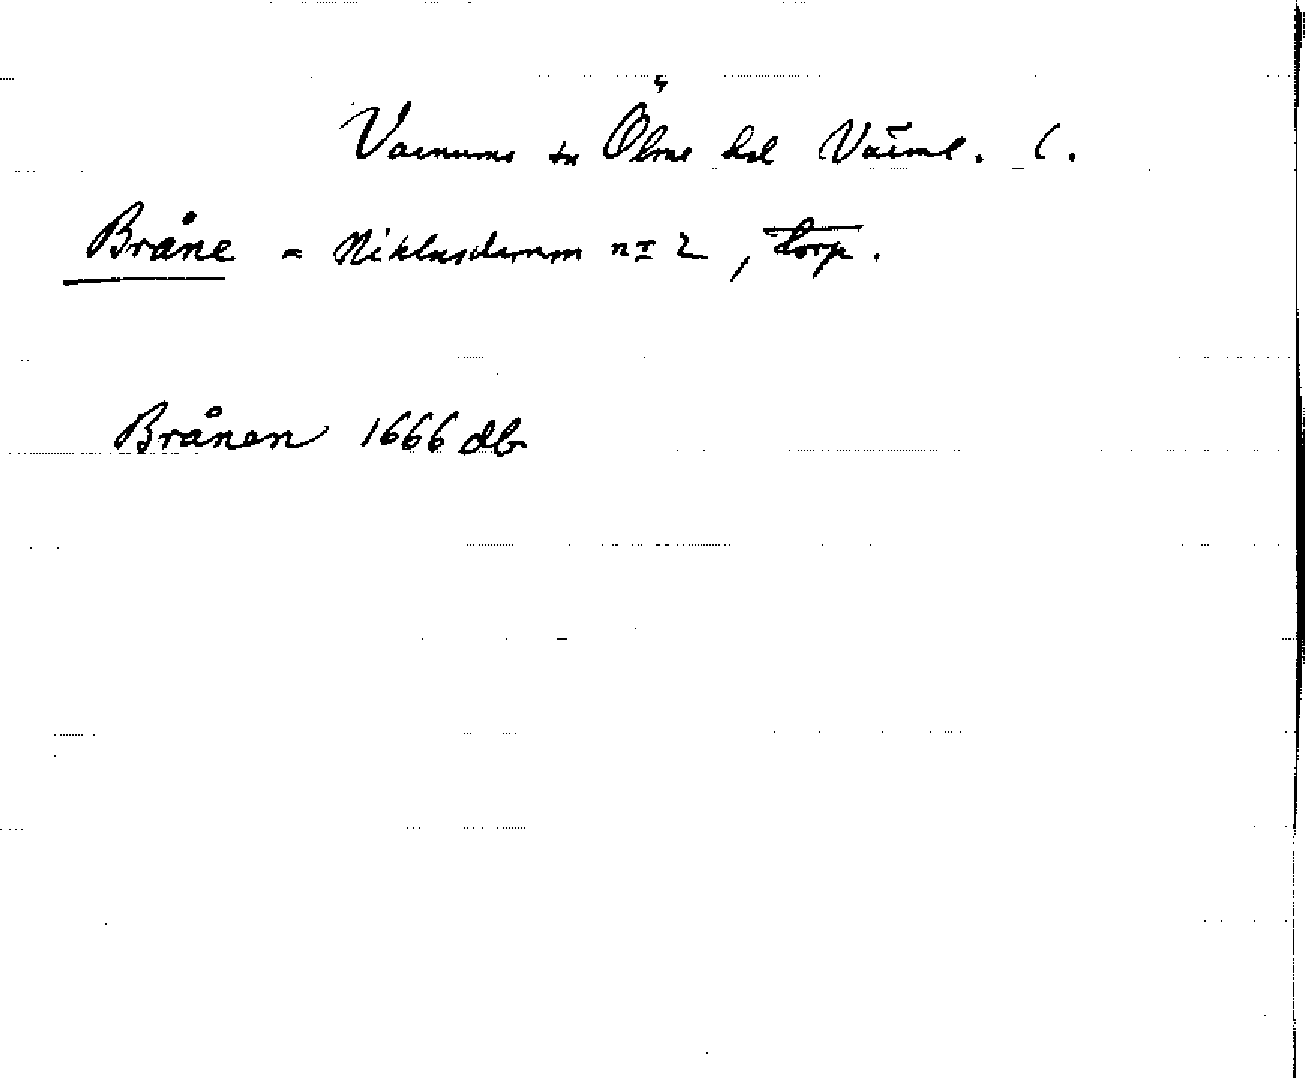 Varnums sn Ölme hd Värml. l.
Bråne = Niklasdamm nr 2, torp.
Brånan 1666 db